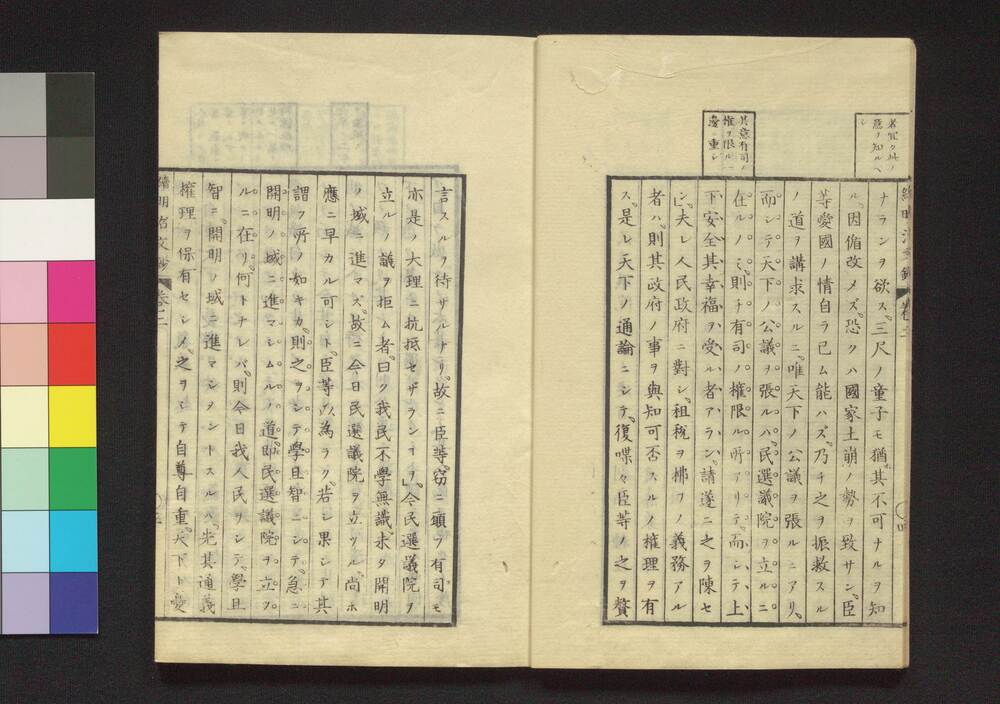 ナランヲ欲ス。三尺ノ童子モ猶。其不可ナルヲ知
ル。因循改メズ。恐クハ國家土崩ノ勢ヲ致サン。臣
等愛國ノ情自ラ已ム能ハズ。乃チ之ヲ振救スル
ノ道ヲ講求スルニ。唯天下ノ公議ヲ張ルニアリ。
而シテ天下ノ公議ヲ張ルハ。民選議院ヲ立ルニ
在ルノミ。則チ有司ノ權限ル所アリテ。而シテ上
下安全其幸福ヲ受ル者アラン。請遂ニ之ヲ陳セ
ン。夫レ人民政府ニ對シ。租税ヲ拂フノ義務アル
者ハ。則其政府ノ事ヲ與知可否スルノ權理ヲ有
ス。是レ天下ノ通論ニシテ。復喋々臣等ノ之ヲ贅
其意有司ノ
權ヲ限ル
言スルヲ待ザルナリ。故ニ臣等。窃ニ願フ有司モ
亦是ノ大理ニ抗抵セザランヿヲ。今民選議院ヲ
立ルノ議ヲ拒ム者。曰ク我民不學無識未タ開明
ノ域ニ進マズ。故ニ今日民選議院ヲ立ツル。尚ホ
應ニ早カル可シト。臣等以為ラク。若シ果シテ其
謂フ所ノ如キカ。則之ヲシテ學且智ニシテ。急ニ
開明ノ域ニ進マシムルノ道。即民選議院ヲ立ツ
ルニ在リ。何トナレバ。則今日我人民ヲシテ。學且
智ニ。開明ノ域ニ進マシメントスルハ。先其通義
權理ヲ保有セシメ。之ヲシテ自尊自重。天下ト憂
續明治文鈔 卷二